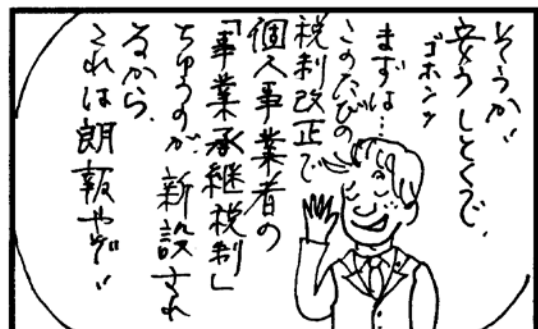 そうか゛
安うしとくで、
ゴホンッ
まずは…
このたびの
税制改正で
個人事業者の
「事業承継税制」
ちゅうのが、新設され
るから、
これは朗報やぞ〃